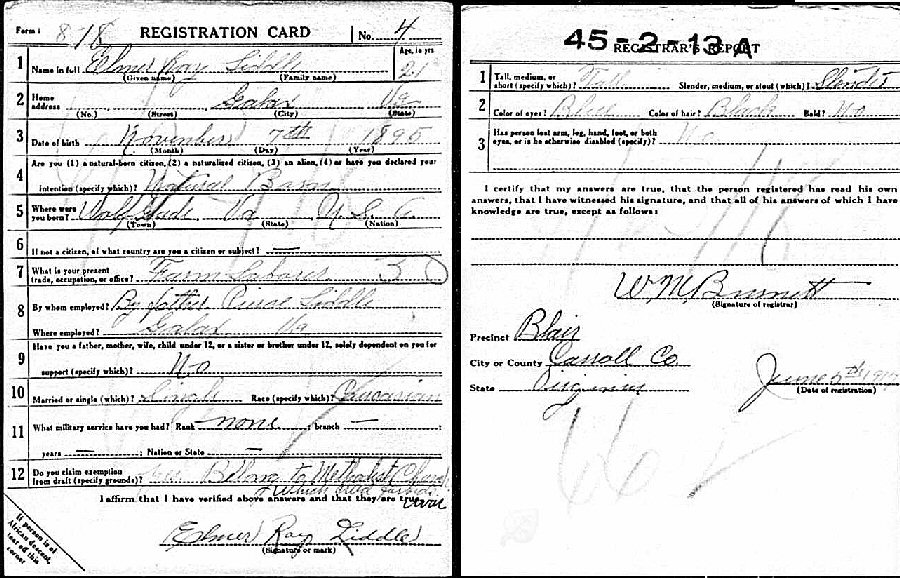 Form 1 878 REGISTRATION CARD No. 4
1 Name in full Elmer Ray Liddle Age, in yrs 21
(Given name) (Family name)
2 Home address Galax Va
(No.) (Street) (City) (State)
3 Date of birth November 7th 1895
(Month) (Day) (Year)
4 Are you (1) a natural-born citizen, (2) a naturalized citizen, (3) an alien, (4) or have you declared your
intention (specify which)? Natural Born
5 Where were you born? Va U.S.A.
(Town) (State) (Nation)
6 If not a citizen, of what country are you a citizen or subject? —
7 What is your present trade, occupation, or office? Farm Laborer 30
8 By whom employed? By father Liddle
Where employed? Galax Va
9 Have you a father, mother, wife, child under 12, or a sister or brother under 12, solely dependent on you for
support (specify which)? No
10 Married or single (which)? Single Race (specify which)? Caucasian
11 What military service have you had? Rank none ; branch — ;
years — ; Nation or State —
12 Do you claim exemption from draft (specify grounds)? Belong to Methodist
which
war
I affirm that I have verified above answers and that they are true.
Elmer Ray Liddle
(Signature or mark)
If person is of African descent, tear off this corner
45-2-13 A
REGISTRAR'S REPORT
1 Tall, medium, or short (specify which)? Tall Slender, medium, or stout (which)? Slender
2 Color of eyes? Blue Color of hair? Black Bald? No
3 Has person lost arm, leg, hand, foot, or both eyes, or is he otherwise disabled (specify)? No
I certify that my answers are true, that the person registered has read his own
answers, that I have witnessed his signature, and that all of his answers of which I have
knowledge are true, except as follows:
W M Burnett
(Signature of registrar)
Precinct Blair
City or County Carroll Co
State Virginia
June 5th 1917
(Date of registration)